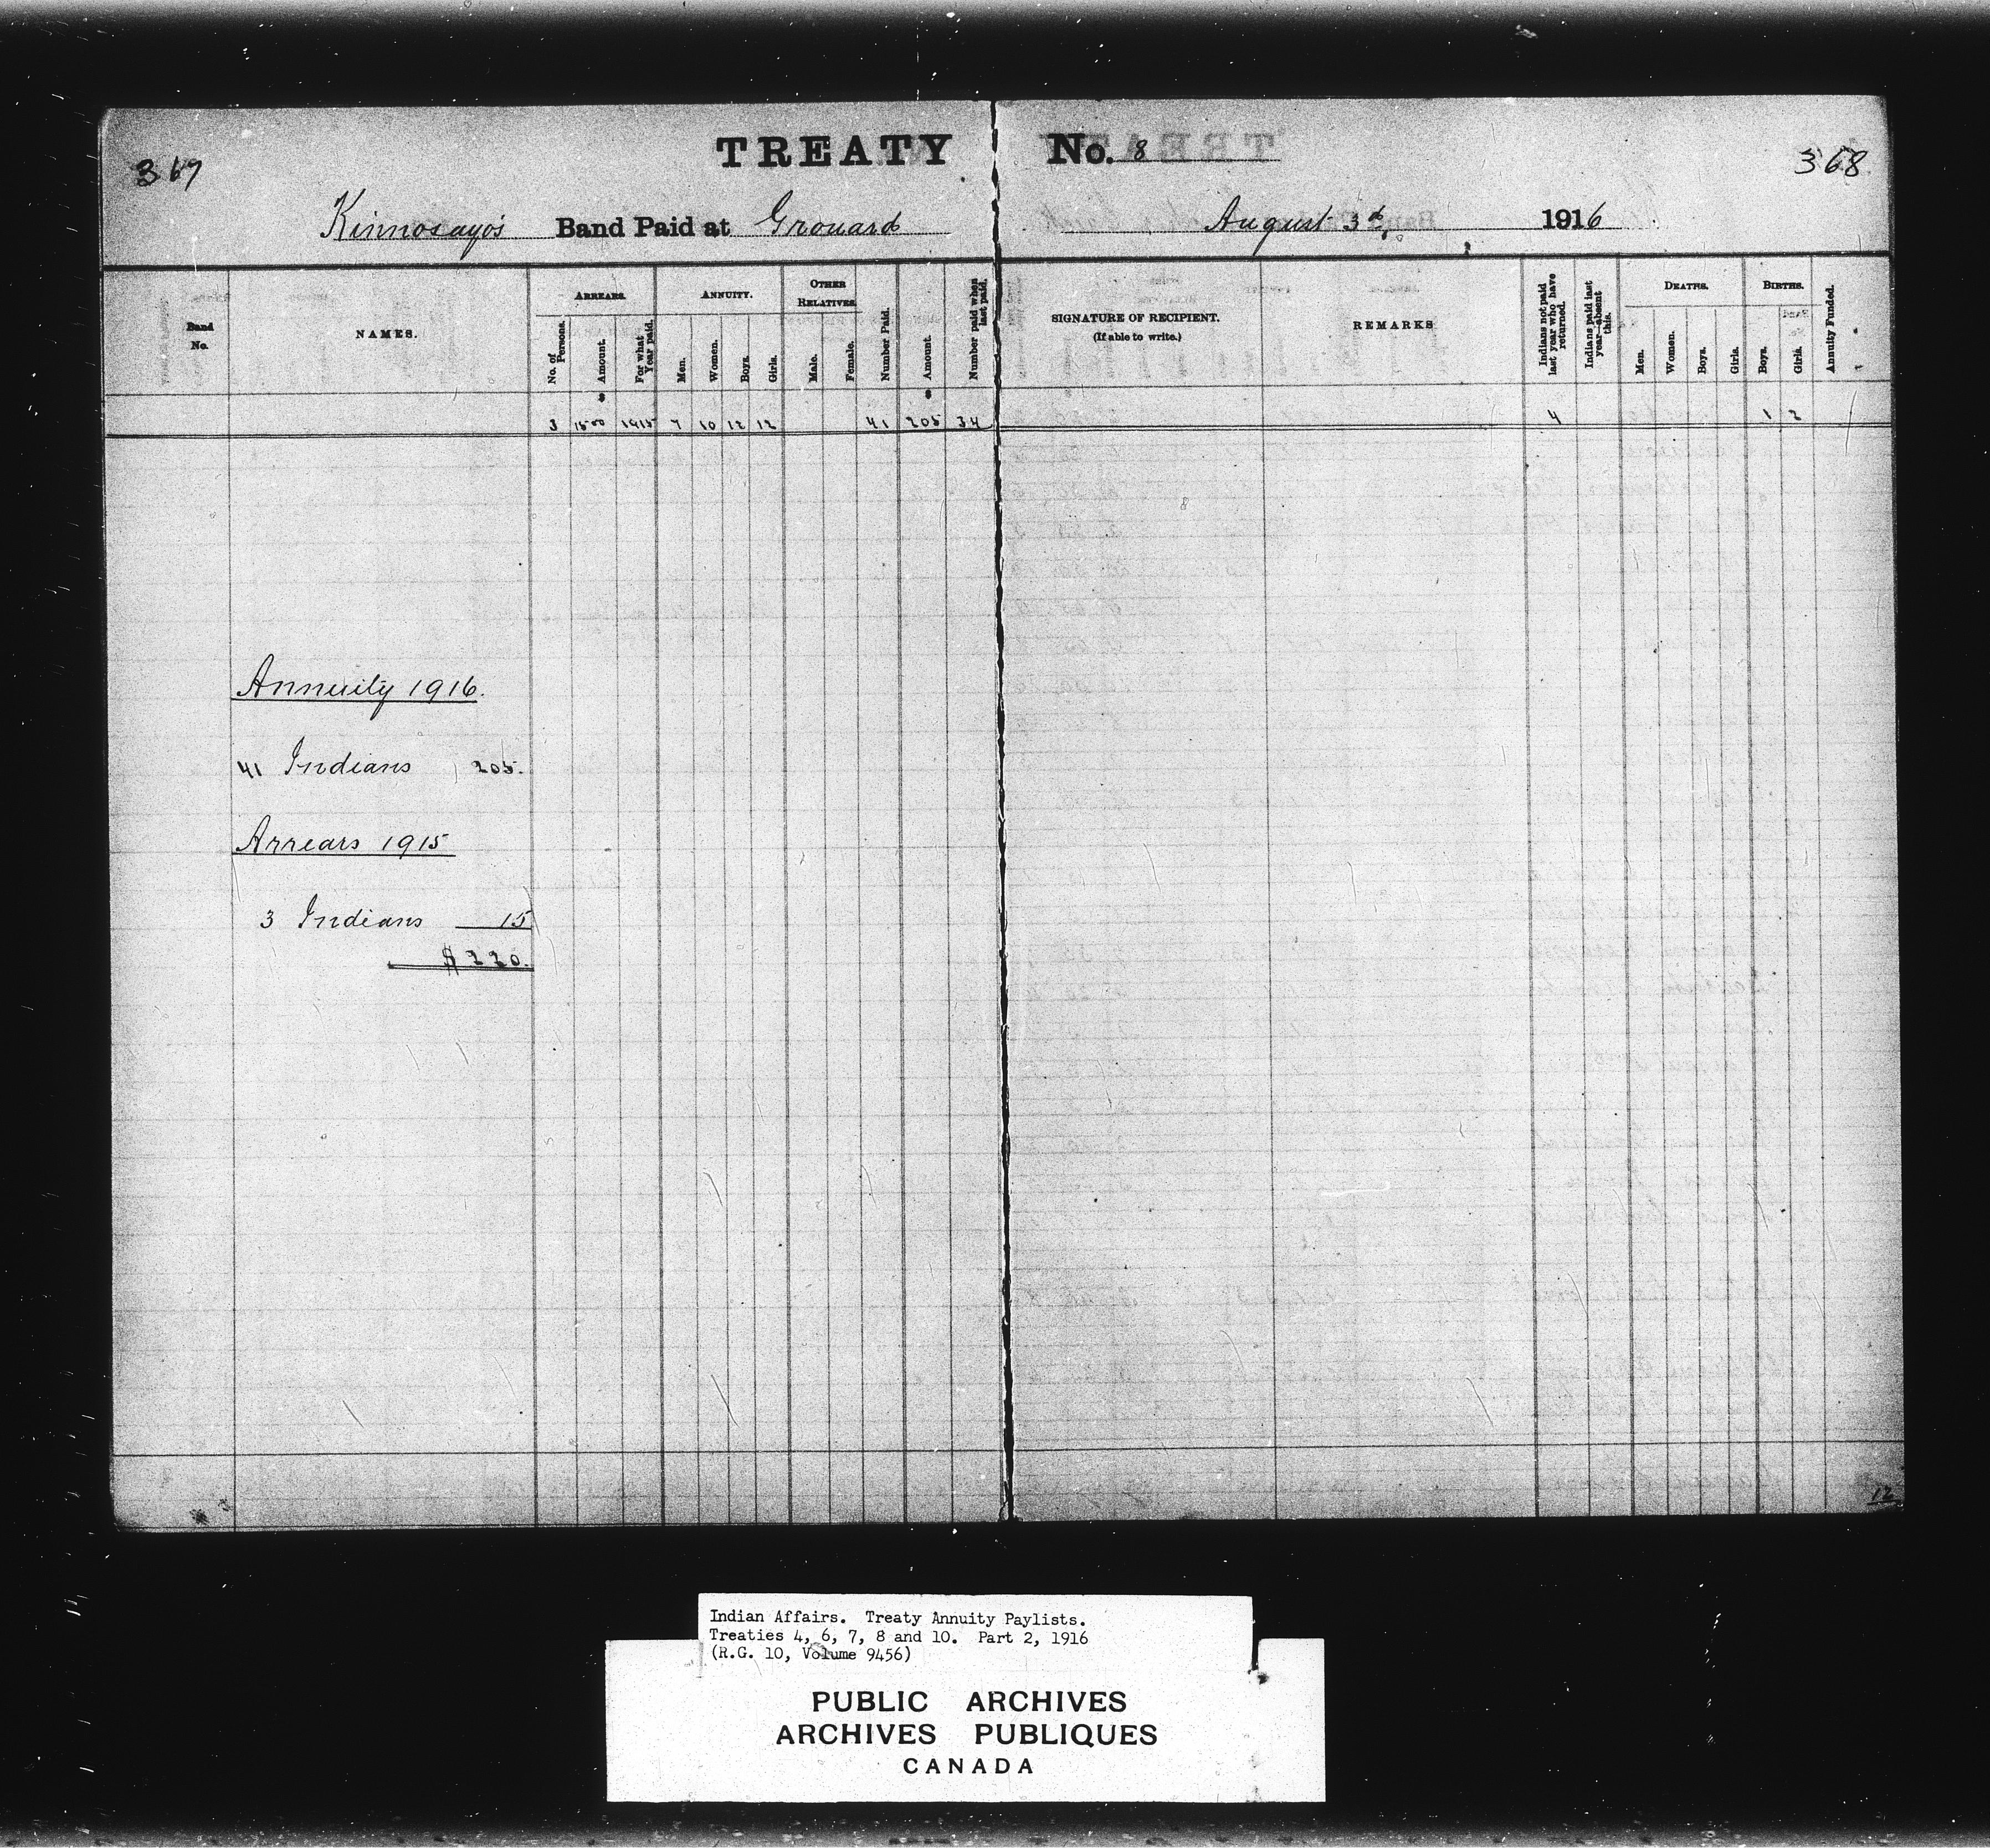 367
TREATY No. 8
368
Kinnosayo's Band Paid at Grouard August 3d, 1916
Band No.
NAMES.
ARREARS.
No. of Persons.
Amount.
For what Year paid.
ANNUITY.
Men.
Women.
Boys.
Girls.
OTHER RELATIVES.
Male.
Female.
Number Paid.
Amount.
Number paid when last paid.
SIGNATURE OF RECIPIENT.
(If able to write.)
REMARKS
Indians not paid last year who have returned.
Indians paid last year—absent this.
DEATHS.
Men.
Women.
Boys.
Girls.
BIRTHS.
Boys.
Girls.
Annuity Funded.
3 15 00 1915 7 10 12 12 41 205 34 4 1 2
Annuity 1916.
41 Indians 205.
Arrears 1915
3 Indians 15
$220.
12
Indian Affairs. Treaty Annuity Paylists.
Treaties 4, 6, 7, 8 and 10. Part 2, 1916
(R.G. 10, Volume 9456)
PUBLIC ARCHIVES
ARCHIVES PUBLIQUES
CANADA